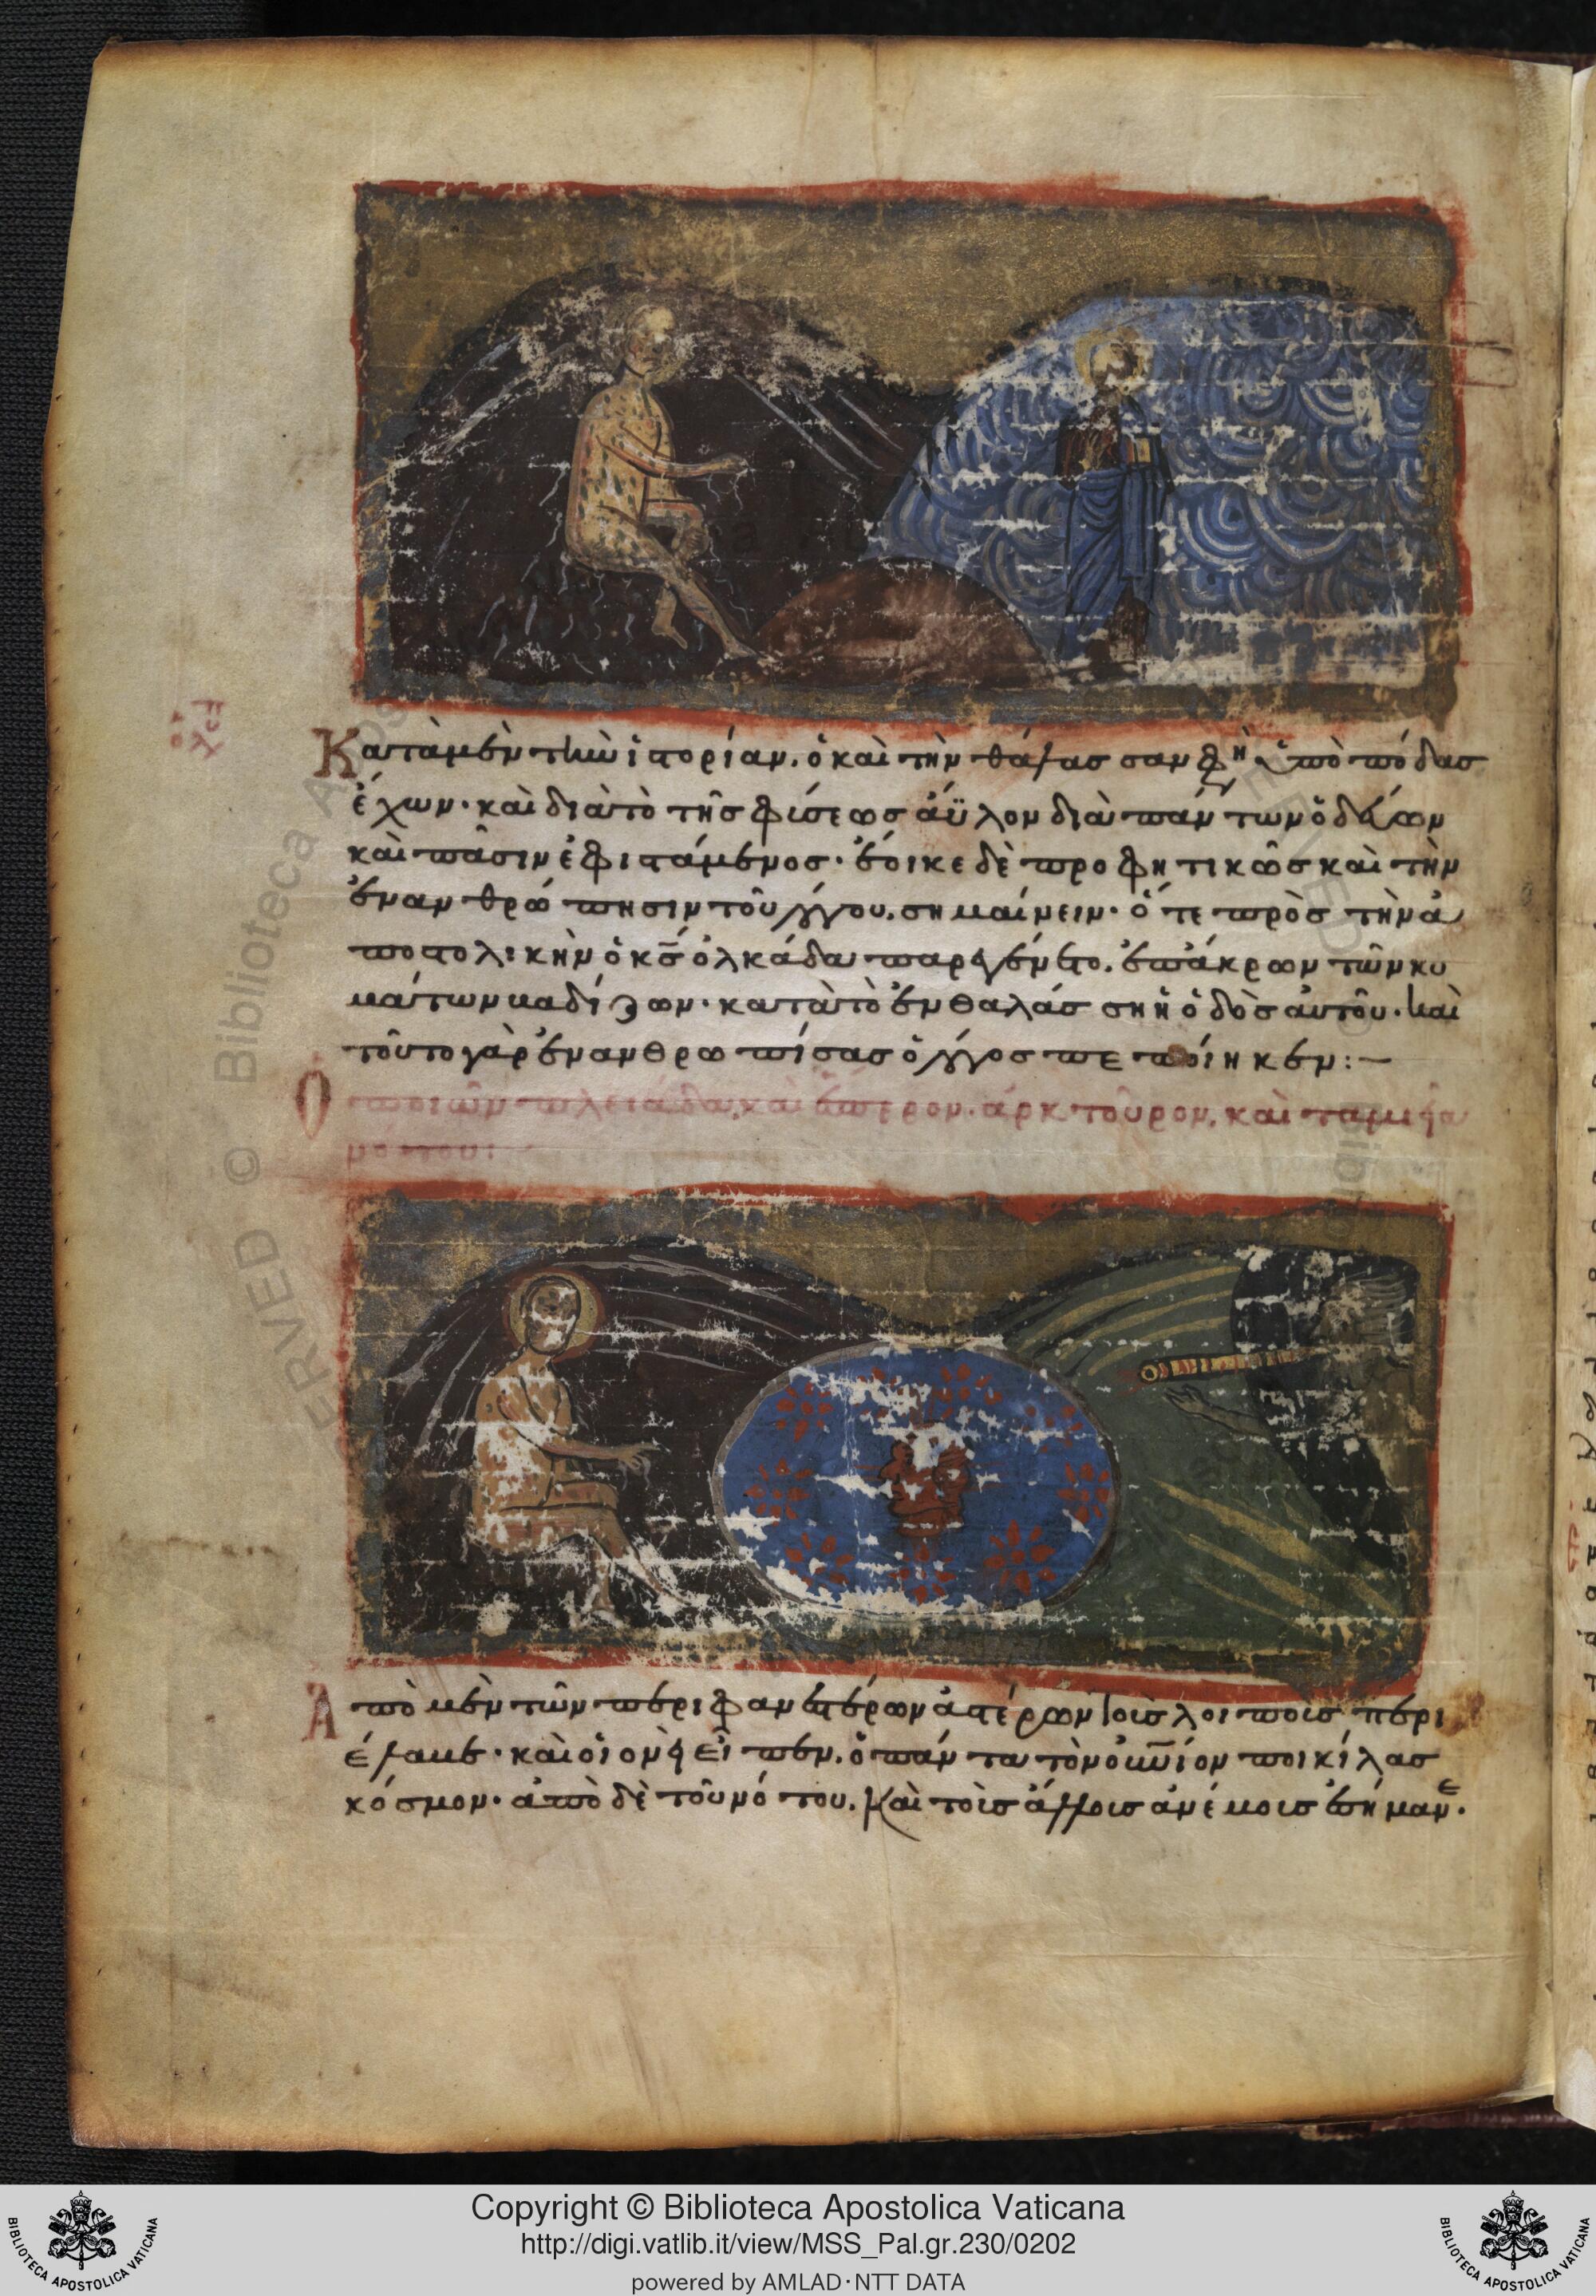 Κατὰ μὲν τὴν ἱστορίαν. ὁ καὶ τὴν θάλασσαν ὑπὸ πόδας
ἔχων· καὶ διὰ τὸ τῆς φύσεως ἄϋλον διὰ πάντων ὁδεύων
καὶ πᾶσιν ἐφιστάμενος· ἔοικε δὲ προφητικῶς καὶ τὴν
ἐνανθρώπησιν τοῦ λόγου. σημαίνειν· ὅτε πρὸς τὴν ἀ
ποστολικὴν ὁ κς ὁλκάδα παρεγένετο. ἐπ ἄκρων τῶν κυ
μάτων βαδίζων· κατὰ τὸ ἐν θαλάσση ἡ ὁδὸς αὐτοῦ. καὶ
τοῦτο γὰρ ἐνανθρωπίσας ὁ λόγος πεποίηκεν:–
Ο ποιῶν πλειάδα, καὶ ἕσπερον. ἀρκτοῦρον, καὶ ταμιεῖα
νότου:
Ἀπὸ μὲν τῶν περιφανεστέρων ἀστέρων τοῖς λοιποῖς περι
έλαβε· καὶ οἱονεὶ εἶπεν. ὁ πάντα τὸν οὐνίον ποικίλας
κόσμον· ἀπὸ δὲ τοῦ νότου. καὶ τοῖς ἄλλοις ἀνέμοις ἐσήμανε·
Copyright © Biblioteca Apostolica Vaticana
http://digi.vatlib.it/view/MSS_Pal.gr.230/0202
powered by AMLAD·NTT DATA
BIBLIOTECA APOSTOLICA VATICANA
BIBLIOTECA APOSTOLICA VATICANA